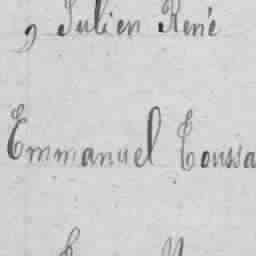 , Julien René
Emmanuel Toussa